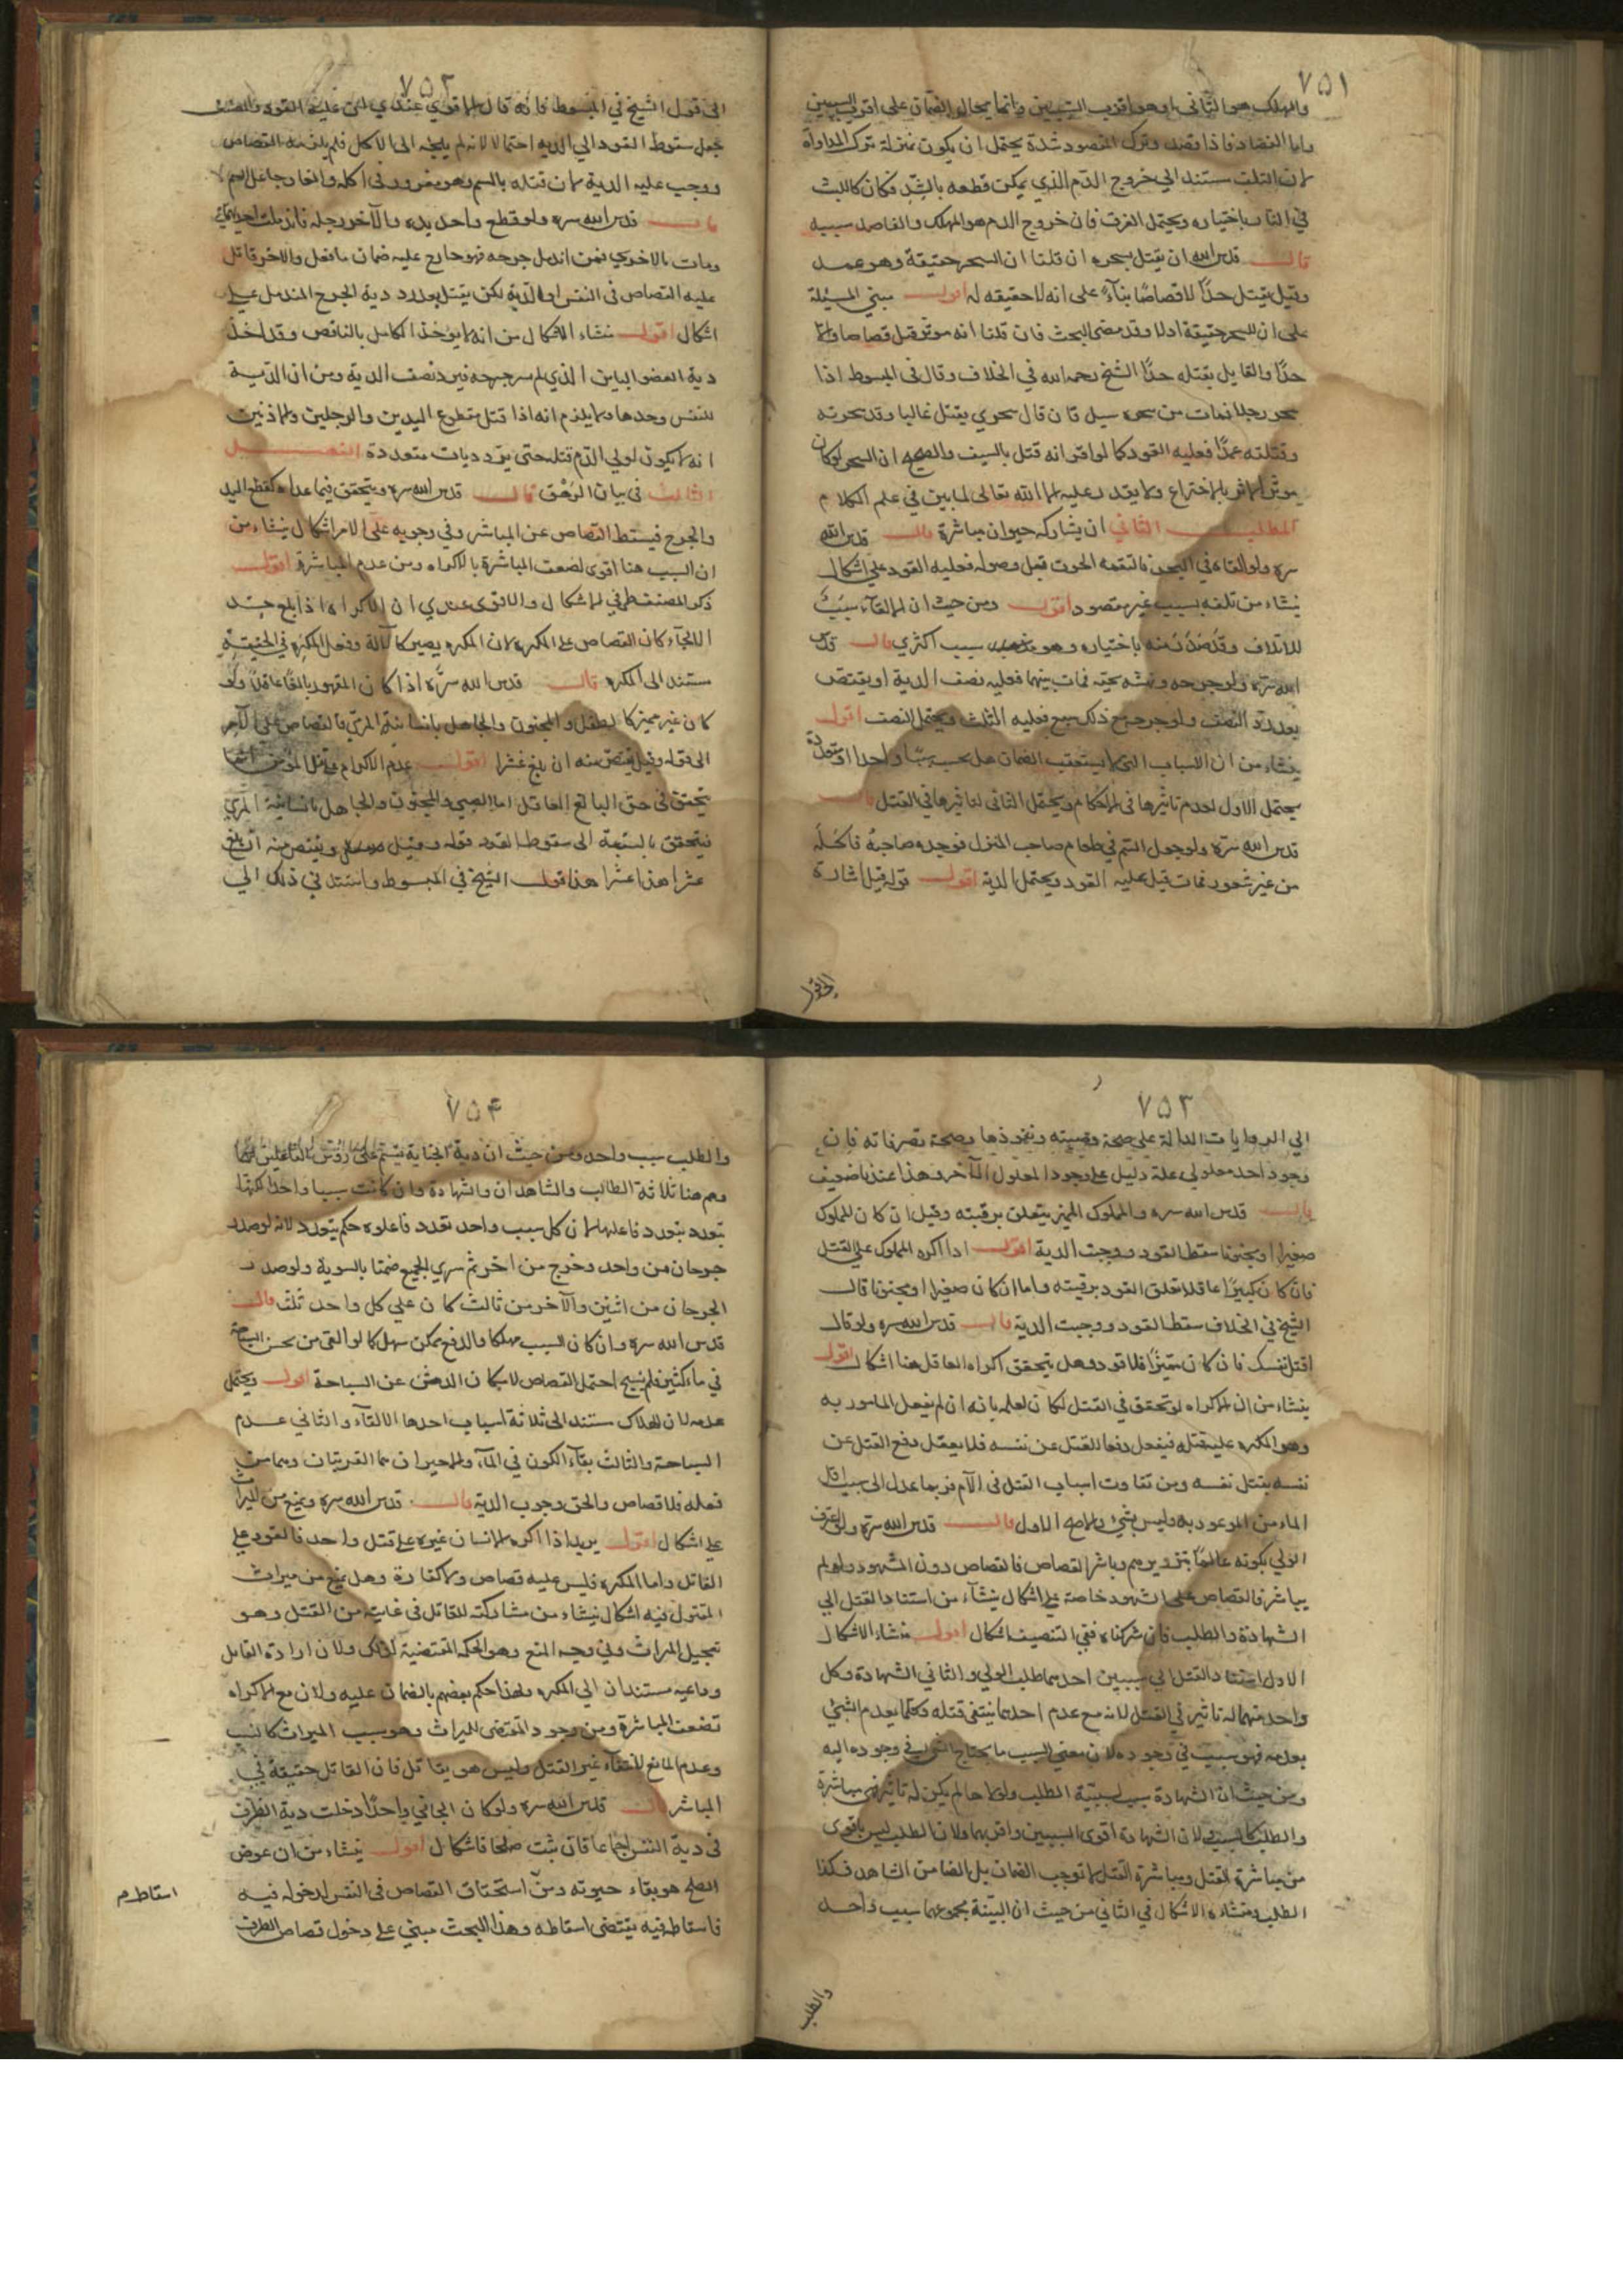 ٧٥١
والمهلك هو الثاني او هو اقرب السببين وانما يحال الضمان على اقرب السببين
واما الفصاد فاذا فصد وترك المقصود شده يحتمل ان يكون بمنزلة ترك المداواة
لان التلف مستند الى خروج الدم الذي يمكن قطعه بالشد فكان كاللبث
في النار باختياره ويحتمل الفرق فان خروج الدم هو المهلك والفاصد سببه
قال قدس الله ان يقتل بسحره ان قلنا ان السحر حقيقة وهو عمد
وقيل يقتل حدّا لا قصاصًا بناءً على انه لا حقيقه له اقول مبنى المسئلة
على ان للسحر حقيقة اولا وقد مضى البحث فان قلنا انه موثر قتل قصاصا والا
حدّا والقايل بقتله حدّا الشيخ رحمه الله في الخلاف وقال في المبسوط اذا
سحر رجلا فمات من سحره سيل فان قال سحري يقتل غالبا وقد سحرته
وقتلته عمدًا فعليه القود كما لو اقر انه قتل بالسيف والصحيح ان السحر لو كان
موثرا لاثر بالاختراع ولا يقدر عليه الا الله تعالى لما بين في علم الكلام
المطلب الثاني ان يشاركه حيوان مباشرة قال قدس الله
سره ولو القاه في البحر فالتقمه الحوت قبل وصوله فعليه القود على اشكال
ينشاء من تلفه بسبب غير مقصود اقول ومن حيث ان الالقآء سبب
للاتلاف وقد صدر منه باختياره وهو سبب اكثري قال قدس
الله سره ولو جرحه ونهشه حية فمات منهما فعليه نصف الدية او يقتص
بعد رد النصف ولو جرح مع ذلك سبع فعليه الثلث ويحتمل النصف اقول
ينشاء من ان الاسباب التي لا يستعقب الضمان هل يحسب سببا واحدا او متعددة
يحتمل الاول لعدم تاثيرها في الاحكام ويحتمل الثاني لتاثيرها في القتل قال
قدس الله سره ولو جعل السم في طعام صاحب المنزل فوجده صاحبه فاكله
من غير شعور فمات قيل عليه القود ويحتمل الدية اقول قوله قيل اشارة
٧٥٢
الى قول الشيخ في المبسوط فانه قال الاقوى عندي ان عليه القود والمصنف
جعل سقوط القود الى الدية احتمالا لانه لم يلجئه الى الاكل فلم يلزمه القصاص
ووجب عليه الدية لان قتله بالسم وهو مغرور في اكله والغار جاعل السم
قال قدس الله سره ولو قطع واحد يده والآخر رجله فاندملت احديهما
ومات بالاخرى فمن اندمل جرحه فهو جارح عليه ضمان ما فعل والاخر قاتل
عليه القصاص في النفس او الدية لكن يقتل بعد رد دية الجرح المندمل على
اشكال اقول منشاء الاشكال من انه لا يؤخذ الكامل بالناقص وقد اخذ
دية العضو الباين الذي لم سر جرحه فيرد نصف الدية ومن ان الدية
للنفس وحدها ولا يلزم انه اذا قتل مقطوع اليدين والرجلين والاذنين
انه لا يكون لولي الدم قتله حتى يرد ديات متعددة الفصل
الثالث في بيان المزهق قال قدس الله سره ويتحقق فيما عداه كقطع اليد
والجرح فيسقط القصاص عن المباشر وفي وجوبه على الامر اشكال ينشاء من
ان السبب هنا اقوى لضعف المباشرة بالاكراه ومن عدم المباشرة اقول
ذكر المصنف طرفي الاشكال والاقوى عندي ان الاكراه اذا بلغ حد
الالجآء كان القصاص على المكره لان المكره يصير كالآلة وفعل المكره في الحقيقة
مستند الى المكره قال قدس الله سره اذا كان المقهور بالغا عاقلا ولو
كان غير مميز كالطفل والمجنون والجاهل بانسانية المرمي فالقصاص على الآمر
الى قوله وقيل يقتص منه ان بلغ عشرا اقول عدم الاكراه في قتل المؤمن انما
يتحقق في حق البالغ العاقل اما الصبي والمجنون والجاهل بانسانية المرمي
فيتحقق بالنسبة الى سقوط القود قوله وقيل ويقتص منه ان بلغ
عشرا هذا عشرا هذا قول الشيخ في المبسوط واستند في ذلك الى
٧٥٣
الى الروايات الدالة على صحة وصيته ونفوذها وصحة تصرفاته فان
وجود احد معلولي علة دليل على وجود المعلول الآخر وهذا عندنا ضعيف
قال قدس الله سره والمملوك المميز يتعلق برقبته وقيل ان كان المملوك
صغيرا او مجنونا سقط القود ووجبت الدية اقول اذا اكره المملوك على القتل
فان كان كبيرًا عاقلا تعلق القود برقبته واما ان كان صغيرا او مجنونا قال
الشيخ في الخلاف سقط القود ووجبت الدية قال قدس الله سره ولو قال
اقتل نفسك فان كان مميزًا فلا قود وهل يتحقق اكراه العاقل هنا اشكال اقول
ينشاء من ان الاكراه لو تحقق في القتل لكان لعلمه بانه ان لم يفعل المامور به
وهو المكره عليه قتله فيفعل دفعا للقتل عن نفسه فلا يعقل دفع القتل عن
نفسه بقتل نفسه ومن تفاوت اسباب القتل في الآلام فربما عدل الى سبب اقل
الما من الموعود به وليس بشئ والاصح الاول قال قدس الله سره ولو اعترف
الولي بكونه عالمًا بتزويرهم وباشر القصاص فالقصاص دون الشهود ولو لم
يباشر فالقصاص على الشهود خاصة على اشكال ينشآء من استناد القتل الى
الشهادة والطلب فان شركناه ففي التنصيف اشكال اقول منشاء الاشكال
الاول استناد القتل الى سببين احدهما طلب الولي والثاني الشهادة وكل
واحد منهما له تاثير في القتل لانه مع عدم احدهما ينتفى قتله وكلما يعدم الشئ
بعدمه فهو سبب في وجوده لان معنى السبب ما يحتاج الشئ في وجوده اليه
ومن حيث ان الشهادة سبب لسببية الطلب ولولاها لم يكن له تاثير في مباشرة
والطلب كالسبب لان الشهادة اقوى السببين واقربهما ولان الطلب ليس باقوى
من مباشرة القتل ومباشرة القتل لا توجب الضمان بل الضامن الشاهد فكذا
الطلب ومنشاء الاشكال في الثاني من حيث ان البينة بمجموعها سبب واحد
والطلب
٧٥۴
والطلب سبب واحد ومن حيث ان دية الجناية يقسم على رؤس الفاعلين
وهم هنا ثلاثة الطالب والشاهدان والشهادة وان كانت سببا واحدا لكنها
يتعدد بتعدد فاعلها لان كل سبب واحد تعدد فاعلوه حكم بتعدده لانه لو صدر
جرحان من واحد وخرج من اخر ثم سرى الجميع ضمنا بالسوية ولو صدر
الجرحان من اثنين والآخر من ثالث كان على كل واحد ثلث قال
قدس الله سره وان كان السبب مهلكا والدفع ممكن سهل كما لو القى من يحسن السباحة
في ماء كثير فلم يسبح احتمل القصاص لامكان الدهش عن السباحة اقول ويحتمل
عدمه لان الهلاك مستند الى ثلاثة اسباب احدها الالقآء والثاني عدم
السباحة والثالث بقآء الكون في المآء والاخيران هما القريبان وهما من
فعله فلا قصاص والحق وجوب الدية قال قدس الله سره ويمنع من الميراث
على اشكال اقول يريد اذا اكره الانسان غيره على قتل واحد فالقود على
القاتل واما المكره فليس عليه قصاص ولا كفارة وهل يمنع من ميراث
المقتول فيه اشكال ينشاء من مشاركته للقاتل في غايته من القتل وهو
تعجيل الميراث وفي وجه المنع وهو الحكمة المقتضية لذلك ولان ارادة الفاعل
وداعيه مستندان الى المكره ولهذا حكم بعضهم بالضمان عليه ولان مع الاكراه
تضعف المباشرة ومن وجود المقتضى للميراث وهو سبب الميراث كالنسب
وعدم المانع لانتفآء غير القتل وليس هو بقاتل فان القاتل حقيقة في
المباشر قال قدس الله سره ولو كان الجاني واحدًا دخلت دية الطرف
في دية النفس اجماعا فان ثبت صلحا فاشكال اقول ينشاء من ان عوض
الصلح هو بقاء حيوته ومن استحقاق القصاص في النفس لدخوله فيه
فاسقاطه فيه يقتضى اسقاطه وهذا البحث مبني على دخول قصاص الطرف